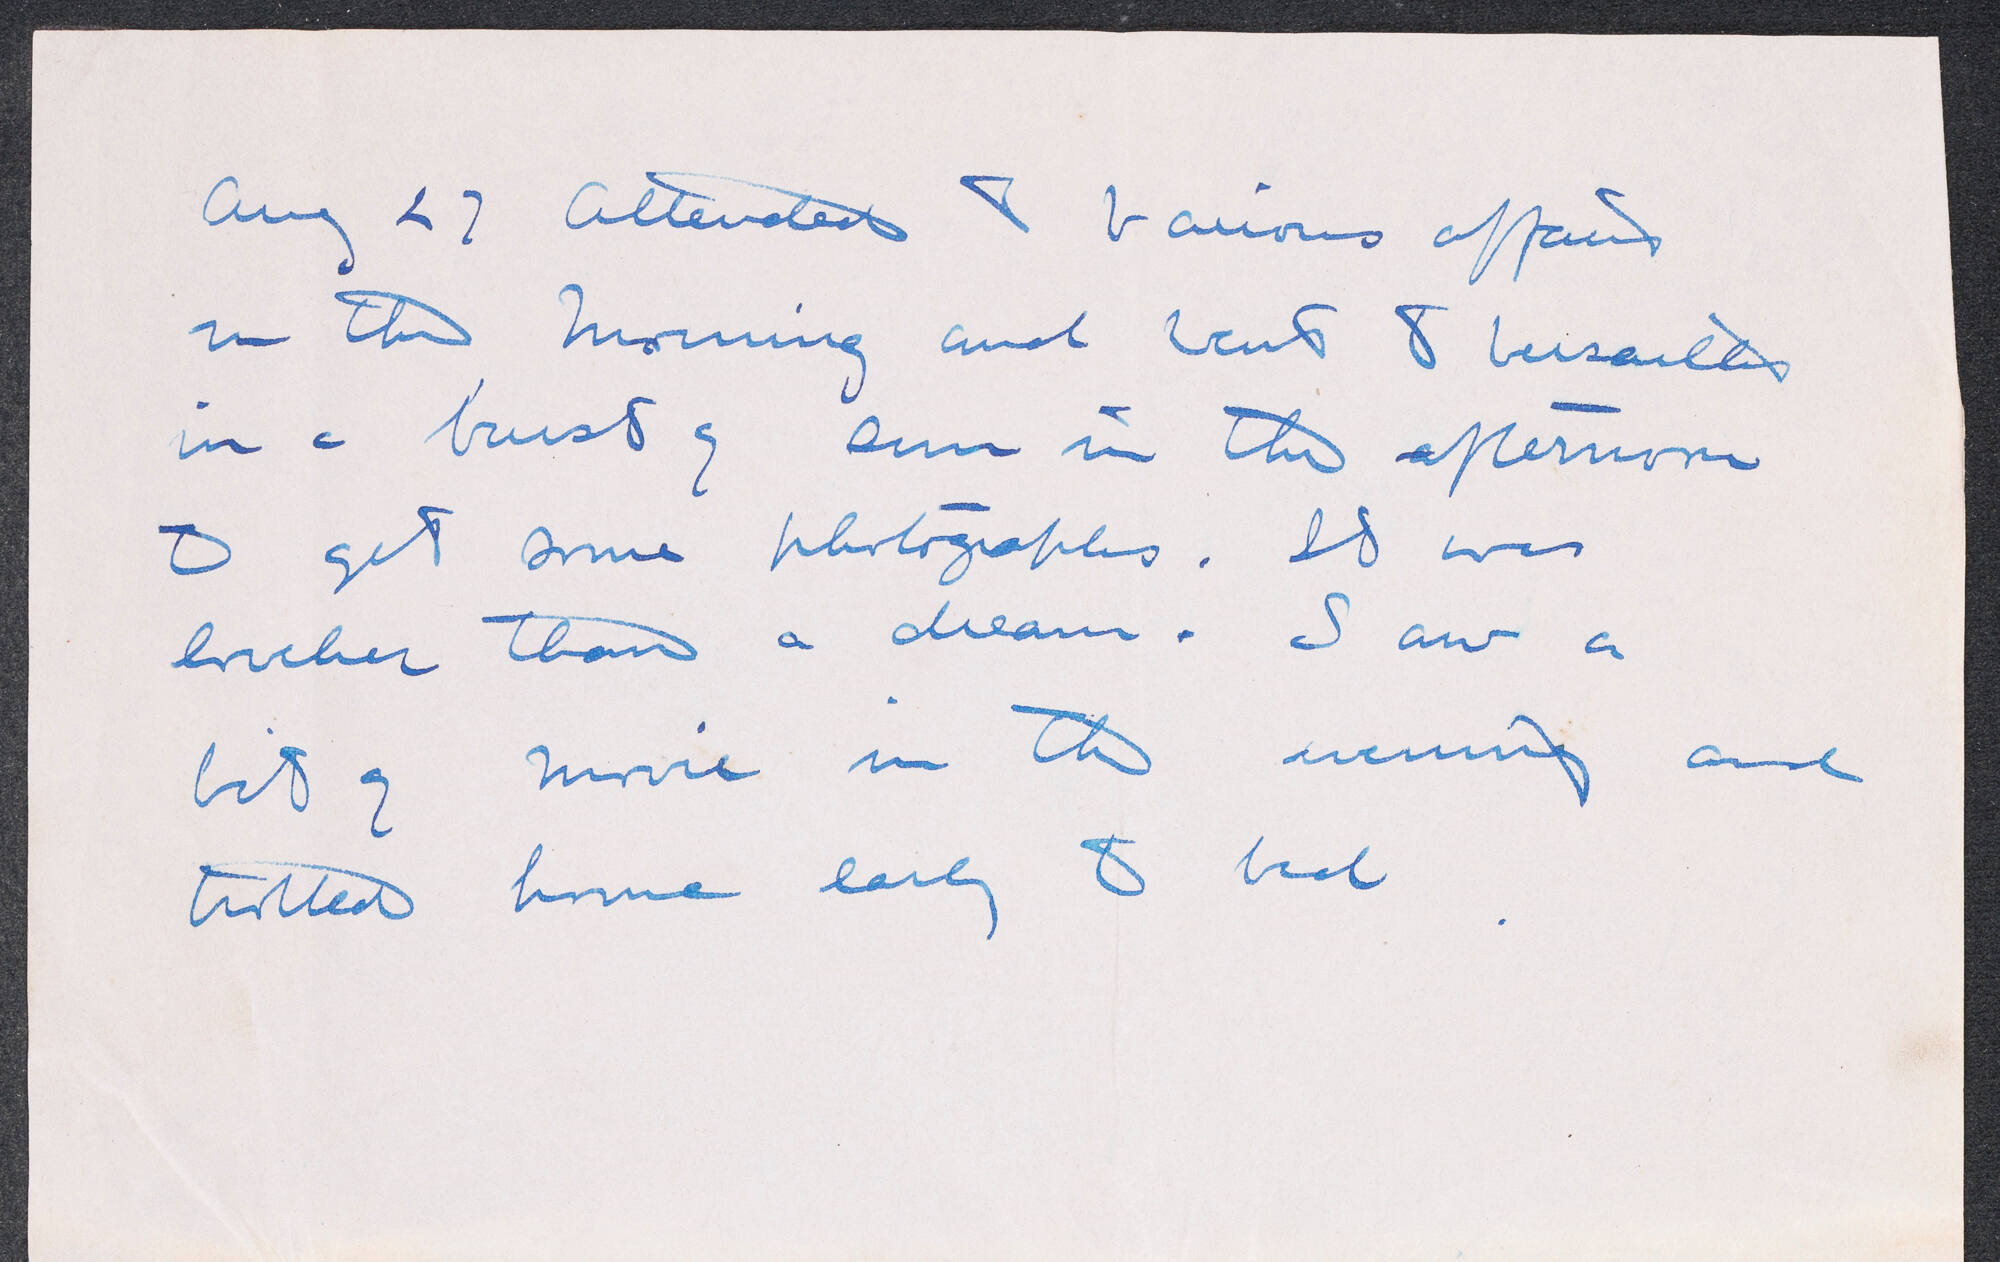 Aug 27 Attended to various affairs
in the morning and went to Versailles
in a burst of sun in the afternoon
to get some photographs. It was
lovelier than a dream. Saw a
bit of movie in the evening and
trotted home early to bed.